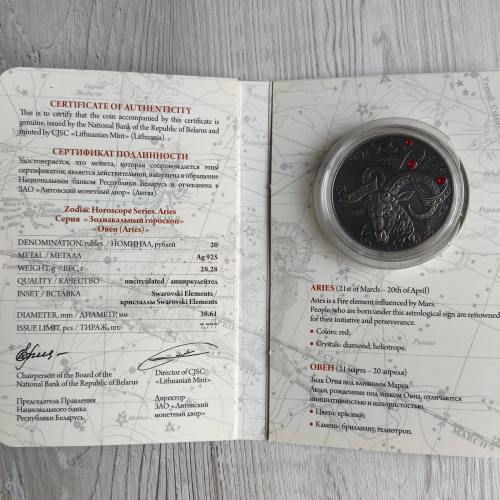 CERTIFICATE OF AUTHENTICITY
This is to certify that the coin accompanied by this certificate is
genuine, issued by the National Bank of the Republic of Belarus and
minted by CJSC «Lithuanian Mint» (Lithuania).
СЕРТИФИКАТ ПОДЛИННОСТИ
Удостоверяется, что монета, которая сопровождается этим
сертификатом, является действительной, выпущена в обращение
Национальным банком Республики Беларусь и отчеканена в
ЗАО «Литовский монетный двор» (Литва).
Zodiac Horoscope Series. Aries
Серия «Зодиакальный гороскоп»
«Овен (Aries)»
DENOMINATION, rubles / НОМИНАЛ, рублей 20
METAL / МЕТАЛЛ Ag 925
WEIGHT, g / ВЕС, г 28.28
QUALITY / КАЧЕСТВО uncirculated / анциркулейтед
INSET / ВСТАВКА Swarovski Elements /
кристаллы Swarovski Elements
DIAMETER, mm / ДИАМЕТР, мм 38.61
ISSUE LIMIT, pcs / ТИРАЖ, шт.
Chairperson of the Board of the
National Bank of the Republic of Belarus
Director of CJSC
«Lithuanian Mint»
Председатель Правления
Национального банка
Республики Беларусь
Директор
ЗАО «Литовский
монетный двор»
ARIES (21st of March – 20th of April)
Aries is a Fire element influenced by Mars.
People, who are born under this astrological sign are renowned
for their initiative and perseverance.
• Colors: red;
• Crystals: diamond, heliotrope.
ОВЕН (21 марта – 20 апреля)
Знак Огня под влиянием Марса.
Люди, рожденные под знаком Овна, отличаются
инициативностью и напористостью.
• Цвета: красный;
• Камень: бриллиант, гелиотроп.